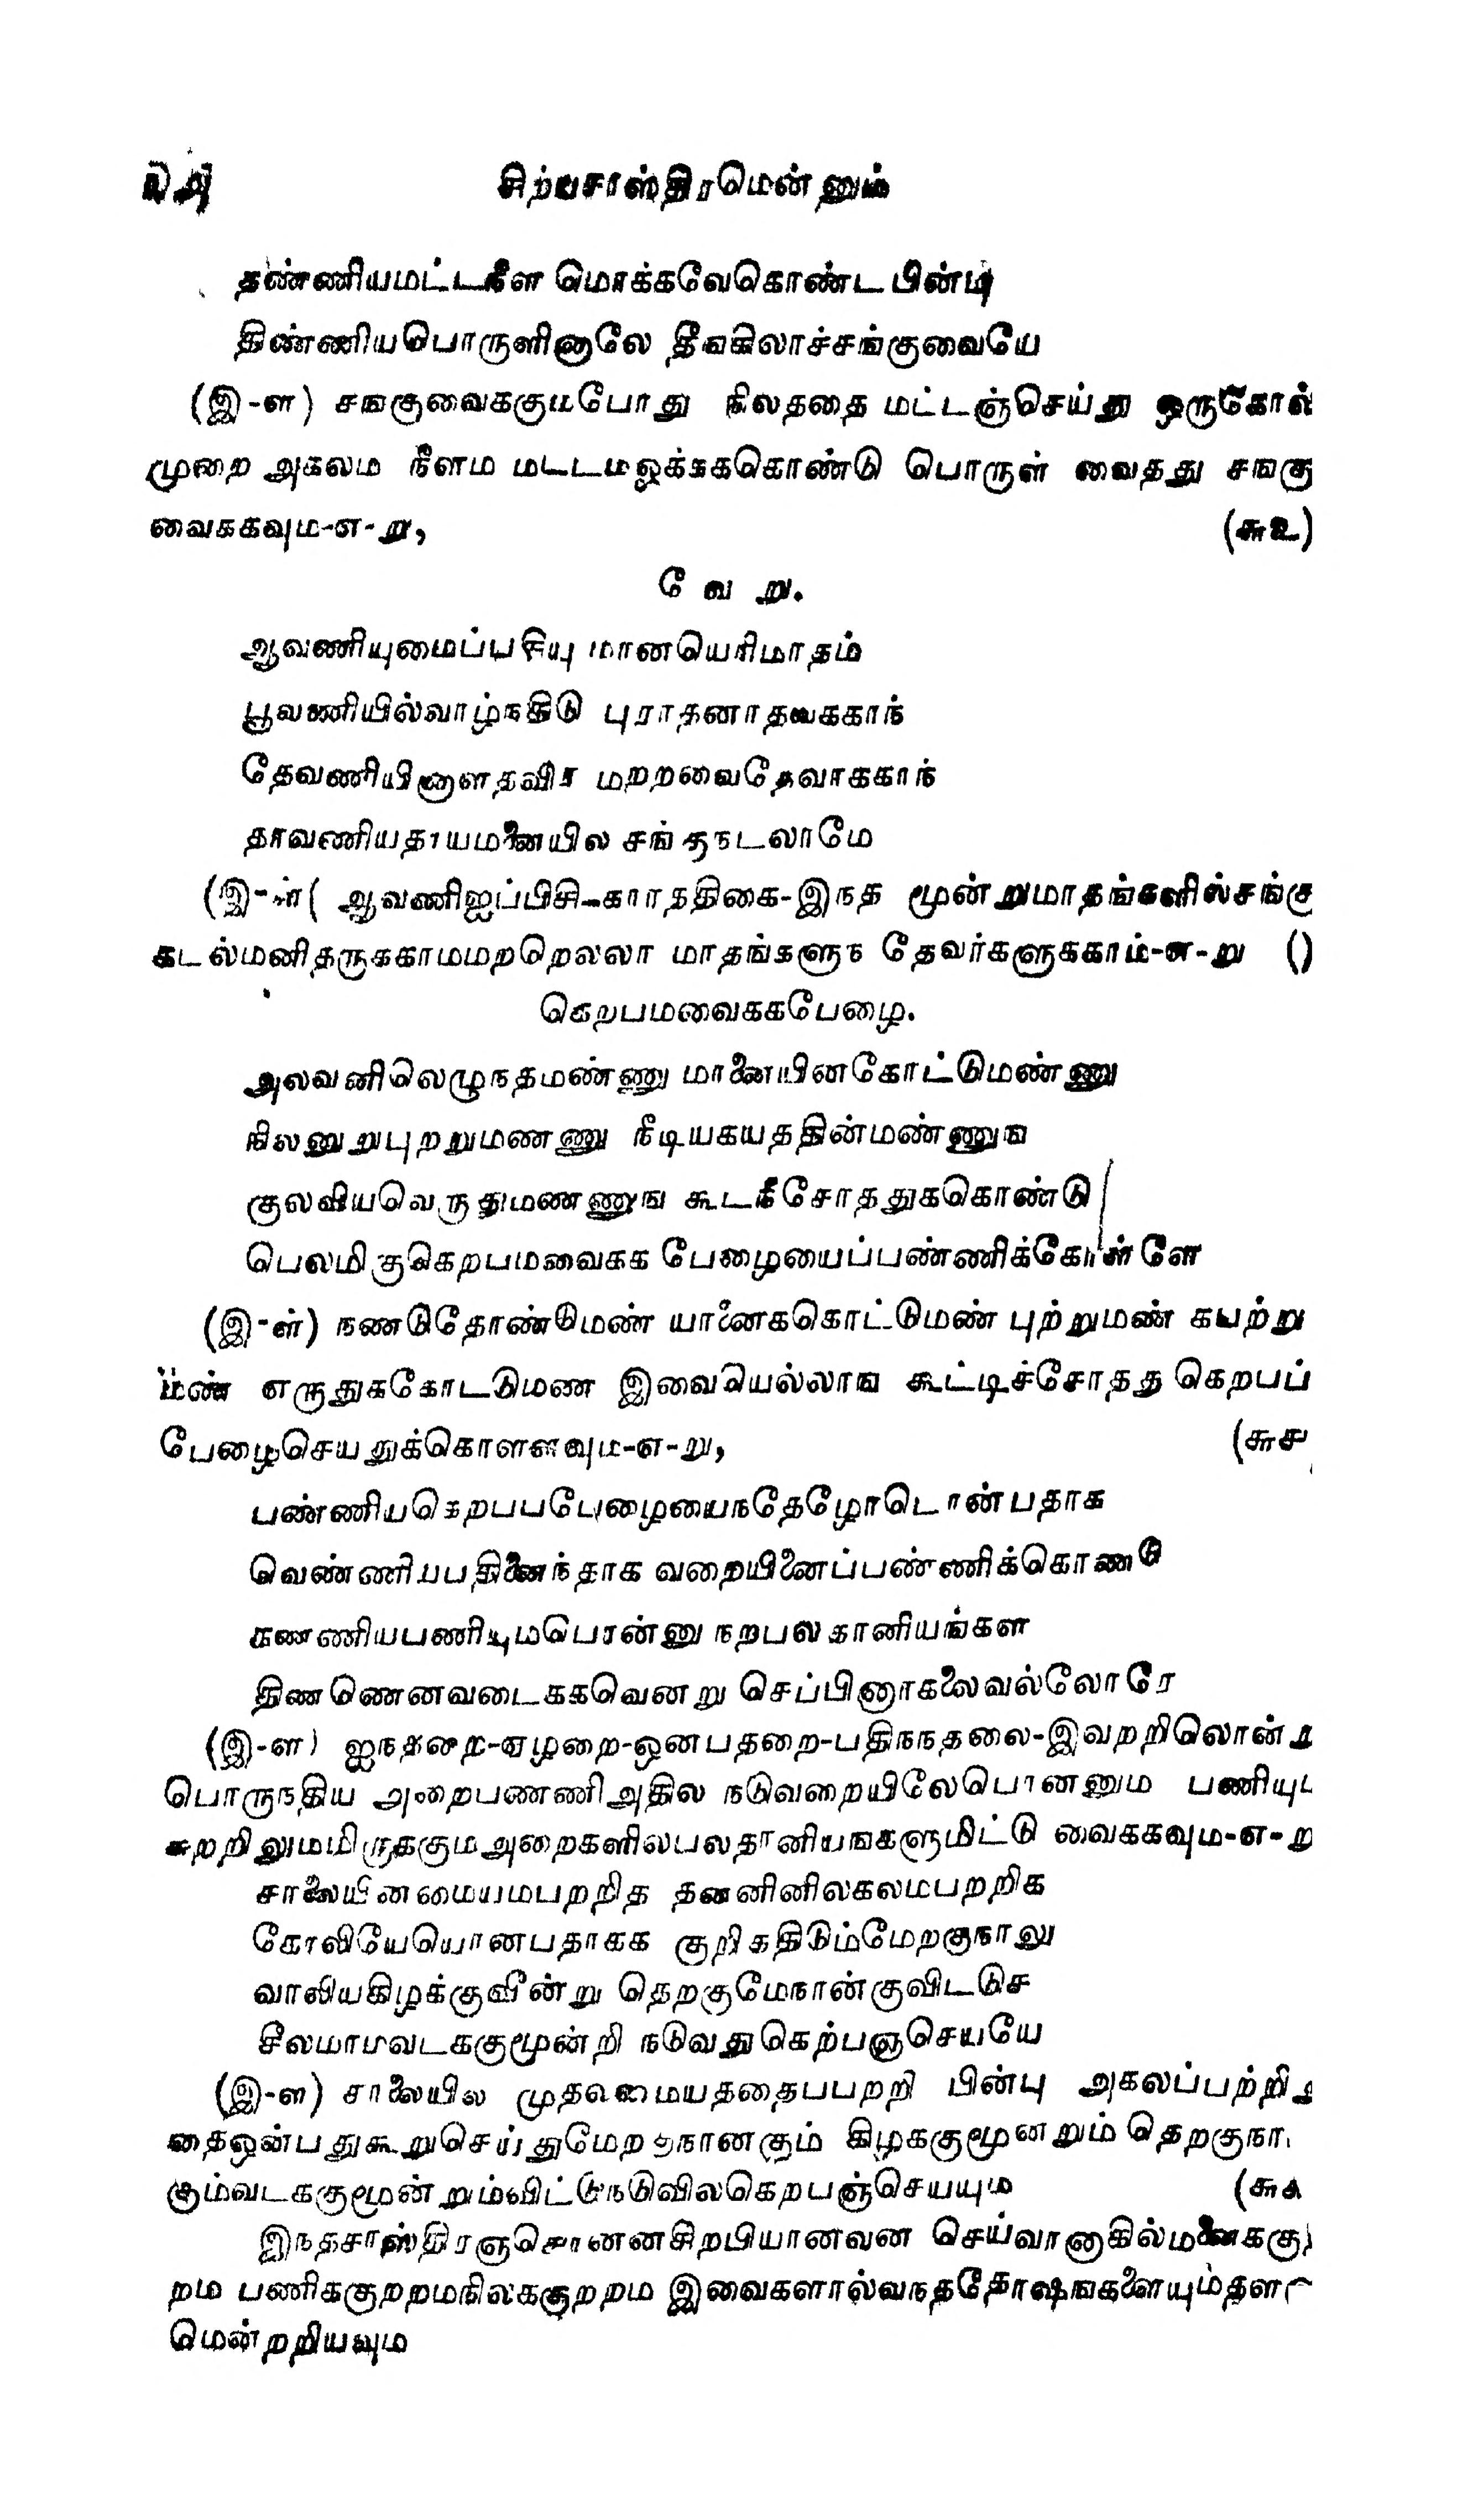 ௰அ சிற்பசாஸ்திரமென்னும்
தண்ணியமட்டநீள மொக்கவேகொண்டபின்பு
திண்ணியபொருளினாலே தீவகிலாச்சங்குவையே
(இ-ள) சஙகுவைககுமபோது நிலததை மட்டஞ்செய்து ஒருகோல்
முறை அகலம நீளம மடடமஒக்கககொண்டு பொருள் வைதது சஙகு
வைககவும-எ-று, (௬௨)
வே று.
ஆவணியுமைப்பசியு மானயெரிமாதம்
பூவணியில்வாழ்நதிடு புராதனாதலககாந்
தேவணியினாளதவிர மறறவைதேவாககாந்
தாவணியதாயமனையில சங்குநடலாமே
(இ-ள்( ஆவணிஐப்பிசி-காாததிகை-இநத மூன்றுமாதங்களில்சங்கு
கடல்மனிதருககாமமறறெலலா மாதங்களுந தேவர்களுககாம்-எ-று ()
கெறபமவைககபேழை.
அலவனிலெழுநதமண்ணு மானையினகோட்டுமண்ணு
நிலனுறுபுறறுமணணு நீடியகயததின்மண்ணுங
குலவியவெருதுமணணுங கூடநீசோததுககொண்டு
பெலமிகுகெறபமவைகக பேழையைப்பண்ணிக்கோள்ளே
(இ-ள்) நணடுதோண்டுமண் யானைககொட்டுமண் புற்றுமண் கயற்று
மண் எருதுககோடடுமண இவையெல்லாங கூட்டிச்சோதது கெறபப்
பேழைசெயதுக்கொளளவும-எ-று, (௬௪
பண்ணியகெறபபபேழையைநதேழோடொன்பதாக
வெண்ணியபதினைந்தாக வறையினைப்பண்ணிக்கொணடு
கணணியபணியுமபொன்னு நறபலதானியங்கள
திணணெனவடைககவெனறு செப்பினாகலைவல்லோரே
(இ-ள) ஐநதறை-ஏழறை-ஒனபதறை-பதிநநதலை-இவறறிலொன்று
பொருநதிய அறைபணணிஅதில நடுவறையிலேபொனனும பணியும
சுறறிலுமமிருககுமஅறைகளிலபலதானியஙகளுமிட்டு வைககவும-எ-று
சாலையினமையமபறறித தனனினிலகலமபறறிக
கோலியேயொனபதாகக குறிகதிடும்மேறகுநாலு
வாலியகிழக்குவீன்று தெறகுமேநான்குவிடடுச
சீலமாமவடககுமூன்றி நடுவதுகெற்பஞசெயயே
(இ-ள) சாலையில முதலமையததைபபறறி பின்பு அகலப்பற்றிஅ
தைஒன்பதுகூறுசெய்துமேறகுநானகும் கிழககுமூனறும் தெறகுநா
கும்வடககுமூன்றும்விட்டுநடுவிலகெறபஞ்செயயும (௬௬
இநதசாஸ்திரஞசொனனசிறபியானவன செய்வானாகில்மனைககு
றம பணிககுறறமநிலககுறறம இவைகளால்வநததோஷஙகளையும்தள
மென்றறியவும